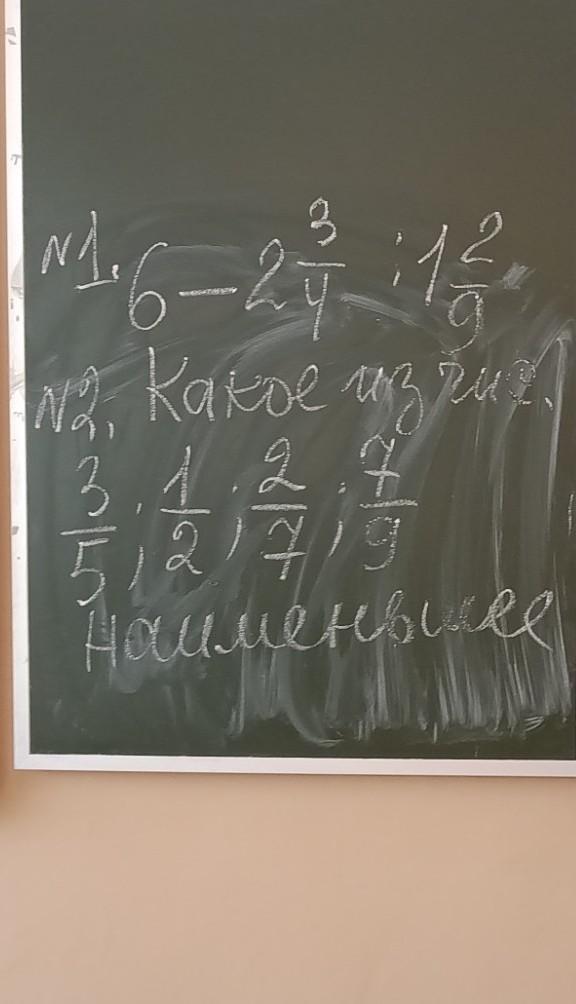 №1. 6 - 2 3/4 : 1 2/9
№2. Какое из чис.
3/5 ; 1/2 ; 2/7 ; 7/9
Наименьшее